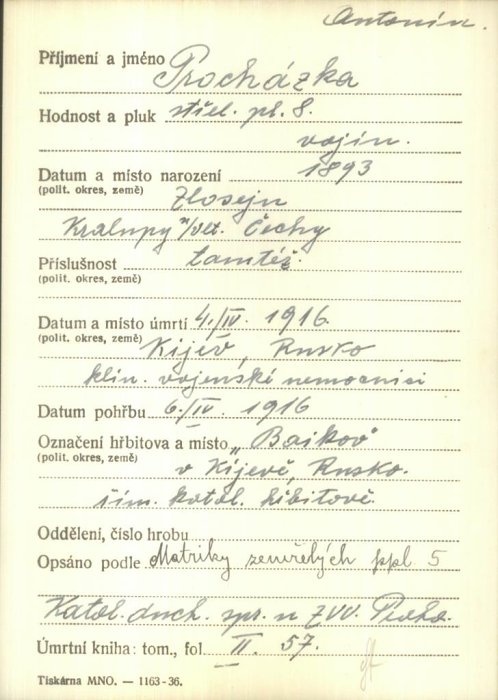 Antonín.
Příjmení a jméno Procházka
Hodnost a pluk střel. pl. 8.
vojín.
Datum a místo narození 1893
(polit. okres, země) Zlosejn
Kralupy n/Vlt. Čechy
Příslušnost tamtéž.
(polit. okres, země)
Datum a místo úmrtí 4./IV. 1916.
(polit. okres, země) Kijev, Rusko
klin. vojenské nemocnici
Datum pohřbu 6./IV. 1916
Označení hřbitova a místo „Baikov"
(polit. okres, země) v Kijevě, Rusko.
řím. katol. hřbitově.
Oddělení, číslo hrobu
Opsáno podle Matriky zemřelých ppl 5
Katol. duch. spr. u ZVV. Praha.
Úmrtní kniha: tom., fol. II. 57.
Tiskárna MNO. — 1163-36.